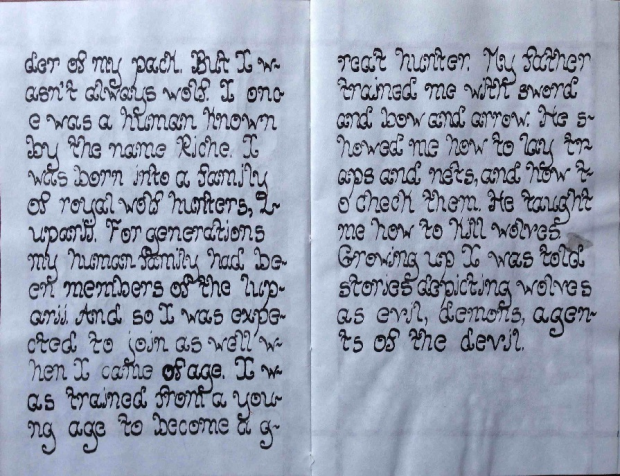 der of my pack. But I w-
asn't always wolf. I onc-
e was a human known
by the name Riche. I
was born into a family
of royal wolf hunters, L-
uparii. For generations
my human family had be-
en members of the lup-
arii. And so I was expe-
cted to join as well w-
hen I came of age. I w-
as trained from a you-
ng age to become a g-
reat hunter. My father
trained me with sword
and bow and arrow. He s-
howed me how to lay tr-
aps and nets, and how t-
o check them. He taught
me how to kill wolves.
Growing up I was told
stories depicting wolves
as evil, demons, agen-
ts of the devil.